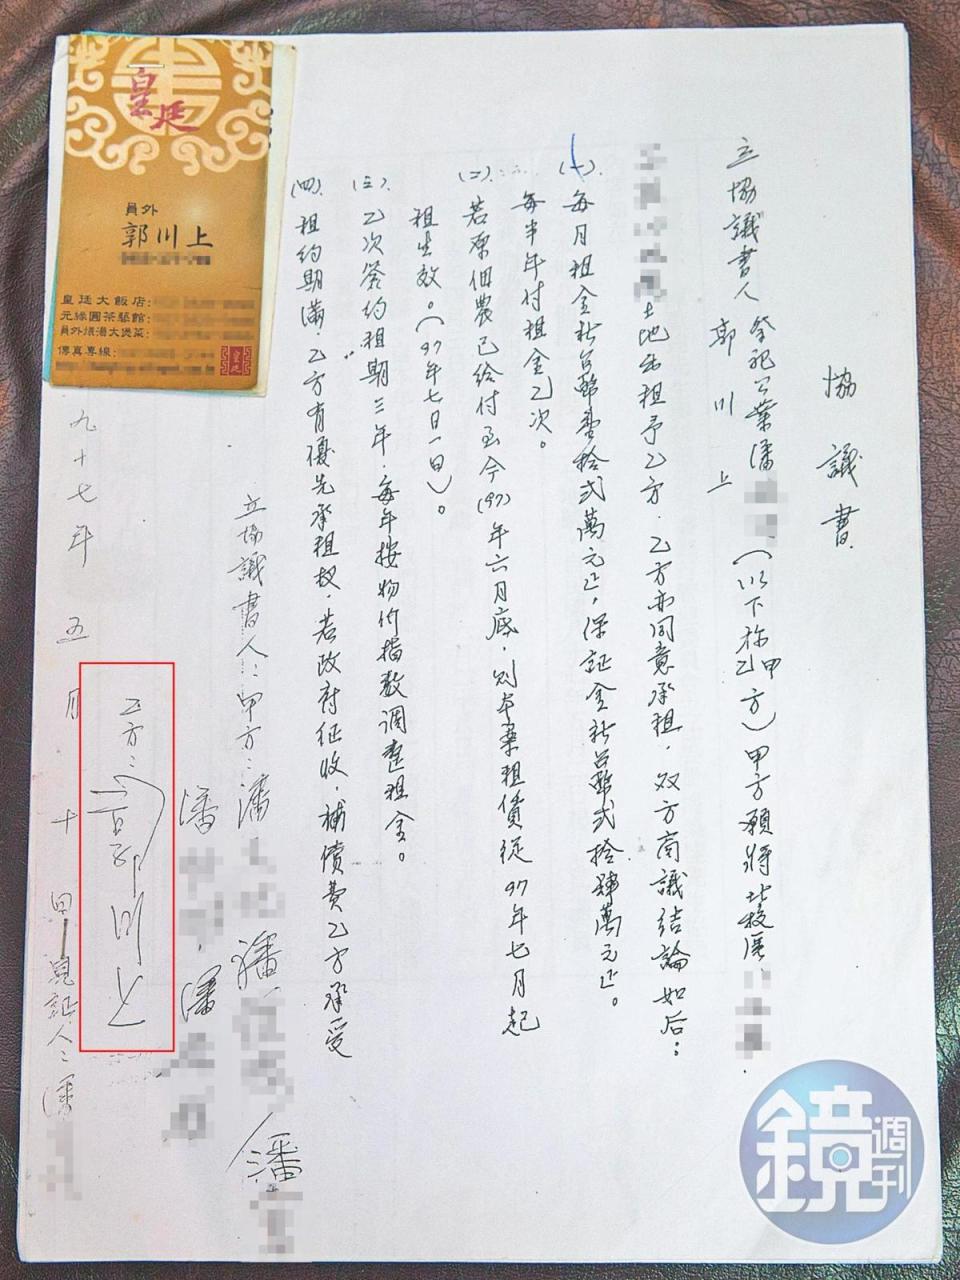 協議書
立協議書人 祭祀公業潘
郭川上
(以下称甲乙方)甲方願將北投區
土地出租予乙方.乙方亦同意承租.双方商議結論如后:
(一).每月租金新台幣壹拾弍萬元正,保証金新台幣弍拾肆萬元正。
每半年付租金乙次。
(二).若原佃農已給付至今(97)年六月底,則本案租賃從97年七月起
租生效。(97年七日一日)。
(三).乙次簽約租期三年.每年按物价指数調整租金。
(四).租約期滿.乙方有優先承租权.若政府征收.補償費乙方承受
立協議書人:甲方:潘
潘
潘
潘
潘
乙方:郭川上
九十七年五月十
見証人:潘
皇廷
員外
郭川上
皇廷大飯店:
元緣圓茶藝館:
員外煨湯大煲菜:
傳真專線:
皇廷
鏡週刊